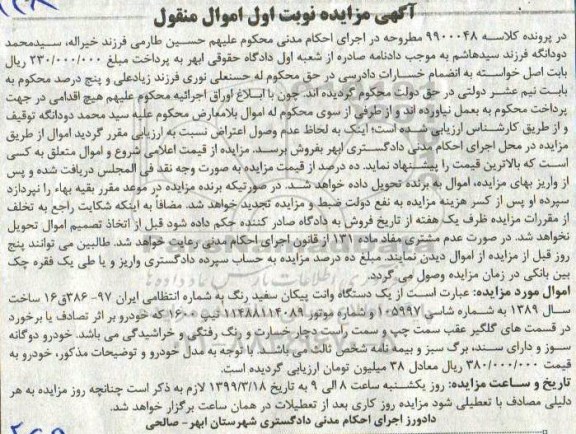 آگهی مزایده نوبت اول اموال منقول
در پرونده کلاسه ۹۹۰۰۰۴۸ مطروحه در اجرای احکام مدنی محکوم علیهم حسین طارمی فرزند خیراله، سیدمحمد
دودانگه فرزند سیدهاشم به موجب دادنامه صادره از شعبه اول دادگاه حقوقی ابهر به پرداخت مبلغ ۲۳۰/۰۰۰/۰۰۰ ریال
بابت اصل خواسته به انضمام خسارات دادرسی در حق محکوم له حسنعلی نوری فرزند زیادعلی و پنج درصد محکوم به
بابت نیم عشر دولتی در حق دولت محکوم گردیده اند. چون با ابلاغ اوراق اجرائیه محکوم علیهم هیچ اقدامی در جهت
پرداخت محکوم به بعمل نیاورده اند و از طرفی از سوی محکوم له اموال بلامعارض محکوم علیه سید محمد دودانگه توقیف
و از طریق کارشناس ارزیابی شده است؛ اینک به لحاظ عدم وصول اعتراض نسبت به ارزیابی مقرر گردید اموال از طریق
مزایده در محل اجرای احکام مدنی دادگستری ابهر بفروش برسد. مزایده از قیمت اعلامی شروع و اموال متعلق به کسی
است که بالاترین قیمت را پیشنهاد نماید. ده درصد از قیمت مزایده به صورت وجه نقد فی المجلس دریافت شده و پس
از واریز بهای مزایده، اموال به برنده تحویل داده خواهد شد. در صورتیکه برنده مزایده در موعد مقرر بقیه بهاء را نپردازد
سپرده او پس از کسر هزینه مزایده به نفع دولت ضبط و مزایده تجدید خواهد شد. مضافا به اینکه شکایت راجع به تخلف
از مقررات مزایده ظرف یک هفته از تاریخ فروش به دادگاه صادر کننده حکم داده شود قبل از اتخاذ تصمیم اموال تحویل
نخواهد شد. در صورت عدم مشتری مفاد ماده ۱۳۱ از قانون اجرای احکام مدنی رعایت خواهد شد. طالبین می توانند پنج
روز قبل از مزایده از اموال دیدن نمایند. مبلغ ده درصد مزایده به حساب سپرده دادگستری واریز و یا طی یک فقره چک
بین بانکی در زمان مزایده وصول می گردد.
اموال مورد مزایده: عبارت است از یک دستگاه وانت پیکان سفید رنگ به شماره انتظامی ایران ۹۷- ۳۸۶ق۱۶ ساخت
سال ۱۳۸۹ به شماره شاسی ۱۰۵۹۹۷ و شماره موتور ۱۱۴۸۸۱۱۴۰۸۹ تیپ ۱۶۰۰ که خودرو بر اثر تصادف یا برخورد
در قسمت های گلگیر عقب سمت چپ و سمت راست دچار خسارت و رنگ رفتگی و خراشیدگی می باشد. خودرو دوگانه
سوز و دارای سند، برگ سبز و بیمه نامه شخص ثالث می باشد. با توجه به مدل خودرو و توضیحات مذکور، خودرو به
قیمت ۳۸۰/۰۰۰/۰۰۰ ریال معادل ۳۸ میلیون تومان ارزیابی گردیده است.
تاریخ و ساعت مزایده: روز یکشنبه ساعت ۸ الی ۹ به تاریخ ۱۳۹۹/۳/۱۸ لازم به ذکر است چنانچه روز مزایده به هر
دلیلی مصادف با تعطیلی شود مزایده روز کاری بعد از تعطیلات در همان ساعت برگزار خواهد شد.
دادورز اجرای احکام مدنی دادگستری شهرستان ابهر- صالحی